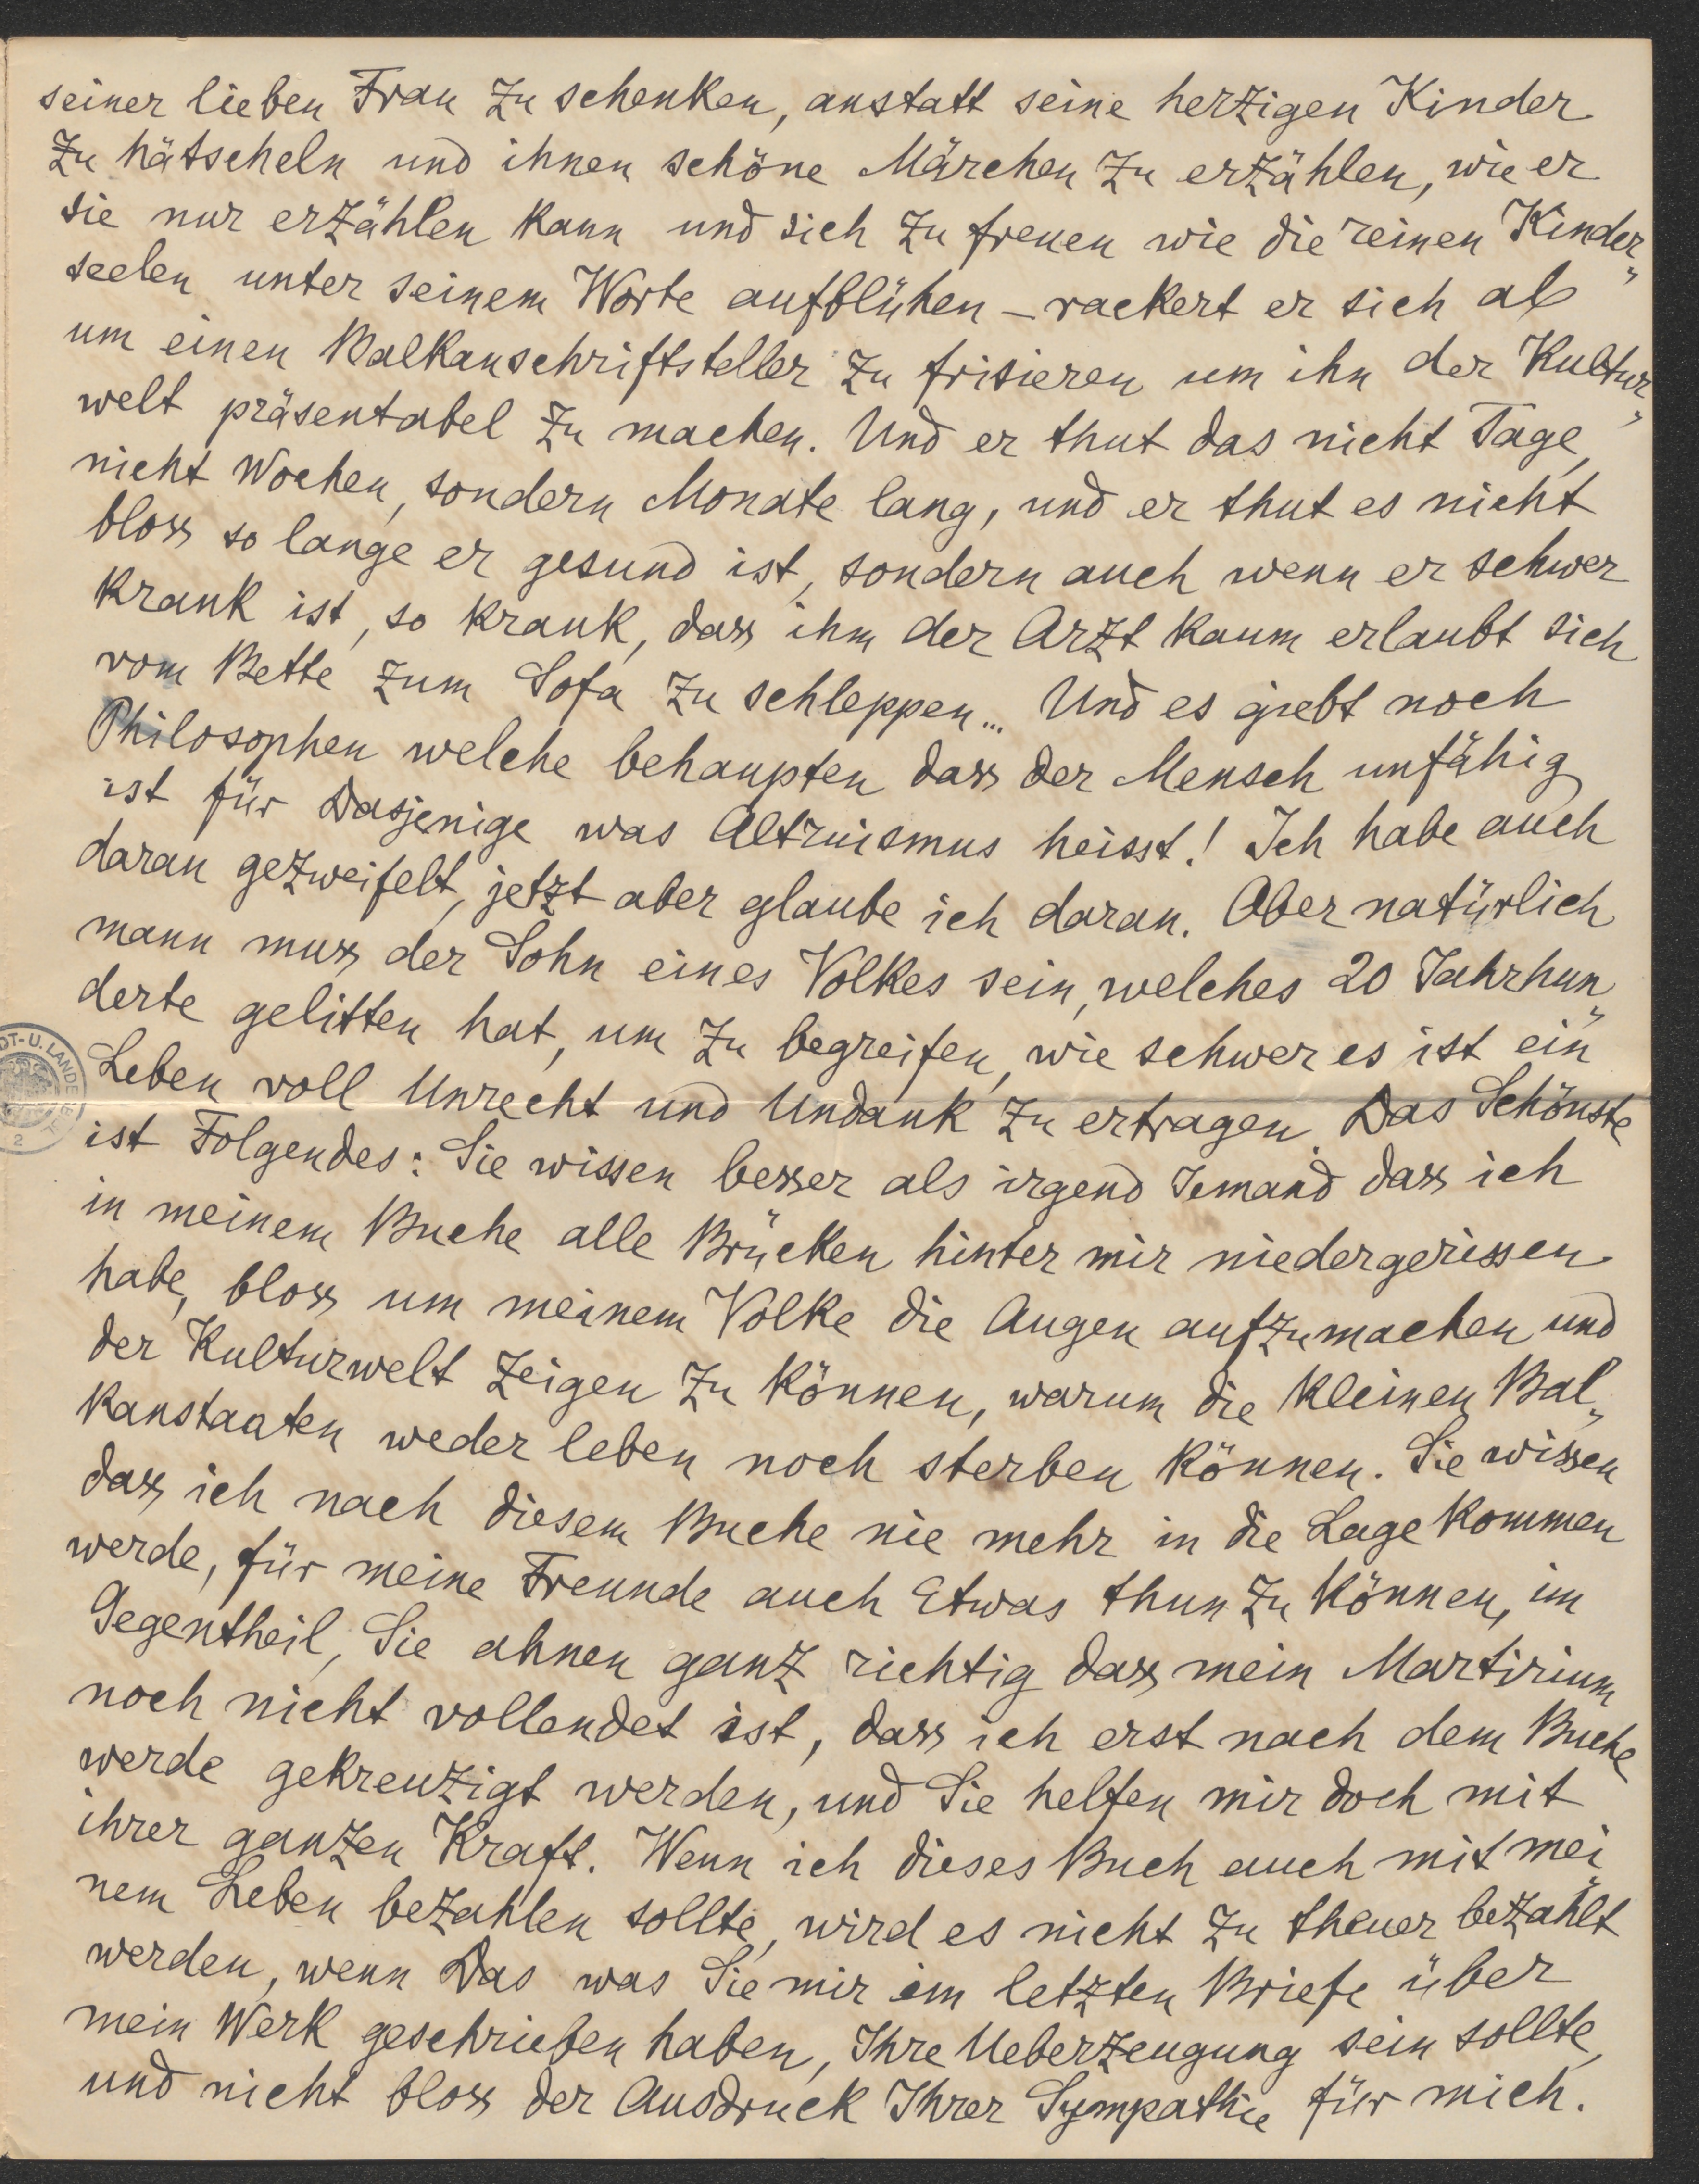 seiner lieben Frau zu schenken, anstatt seine herzigen Kinder
zu hätscheln und ihnen schöne Märchen zu erzählen, wie er
sie nur erzählen kann und sich zu freuen wie die reinen Kinder„
seelen unter seinem Worte aufblühen – rackert er sich ab
um einen Balkanschriftsteller zu frisieren um ihn der Kultur„
welt präsentabel zu machen. Und er thut das nicht Tage,
nicht Wochen, sondern Monate lang, und er thut es nicht
bloss so lange er gesund ist, sondern auch wenn er schwer
krank ist, so krank, dass ihm der Arzt kaum erlaubt sich
vom Bette zum Sofa zu schleppen... Und es giebt noch
Philosophen welche behaupten dass der Mensch unfähig
ist für Dasjenige was Altruismus heisst! Ich habe auch
daran gezweifelt, jetzt aber glaube ich daran. Aber natürlich
mann muss der Sohn eines Volkes sein, welches 20 Jahrhun„
derte gelitten hat, um zu begreifen, wie schwer es ist ein
Leben voll Unrecht und Undank zu ertragen. Das Schönste
ist Folgendes: Sie wissen besser als irgend Jemand dass ich
in meinem Buche alle Brücken hinter mir niedergerissen
habe, bloss um meinem Volke die Augen aufzumachen und
der Kulturwelt zeigen zu können, warum die kleinen Bal„
kanstaaten weder leben noch sterben können. Sie wissen
dass ich nach diesem Buche nie mehr in die Lage kommen
werde, für meine Freunde auch Etwas thun zu können, im
Gegentheil, Sie ahnen ganz richtig dass mein Martirium
noch nicht vollendet ist, dass ich erst nach dem Buche
werde gekreuzigt werden, und Sie helfen mir doch mit
ihrer ganzen Kraft. Wenn ich dieses Buch auch mit mei„
nem Leben bezahlen sollte, wird es nicht zu theuer bezahlt
werden, wenn Das was Sie mir im letzten Briefe über
mein Werk geschrieben haben, Ihre Ueberzeugung sein sollte,
und nicht bloss der Ausdruck Ihrer Sympathie für mich.